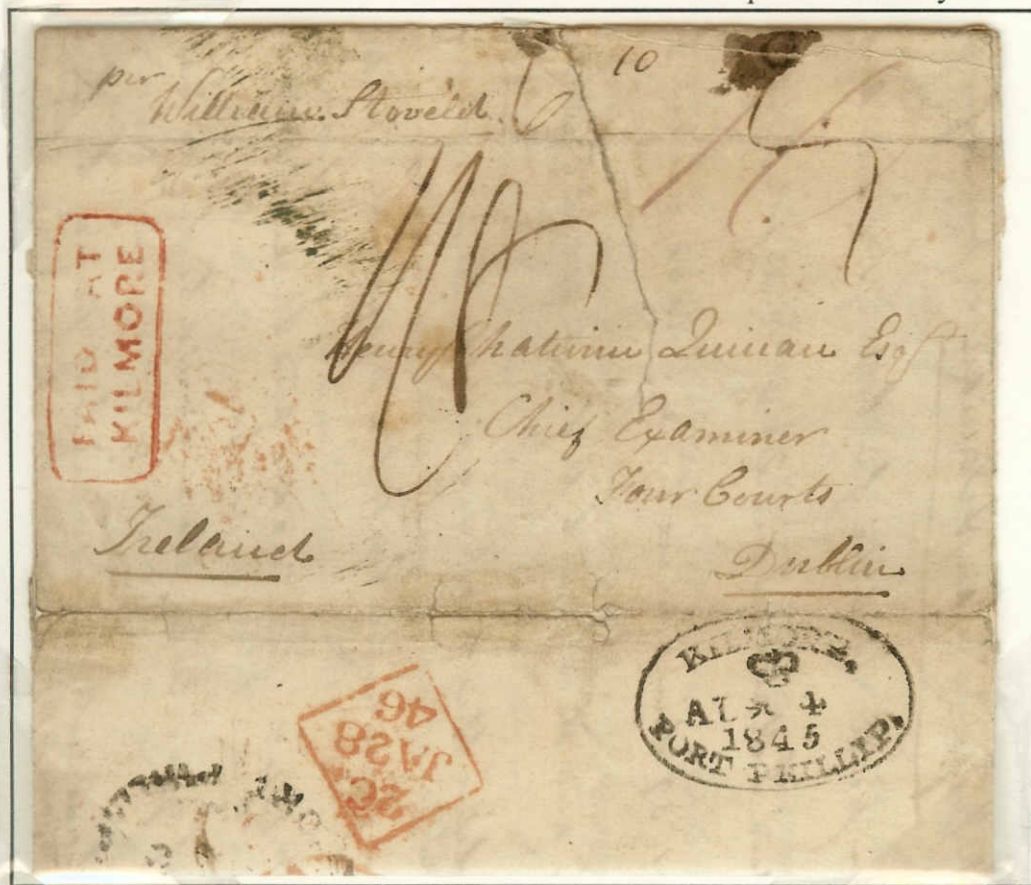 10
per
William Stoveld.
PAID AT
KILMORE
Henry Quinan Esqr
Chief Examiner
Four Courts
Ireland
Dublin
KILMORE.
4
1845
PORT PHILLIP.
2C
JA28
46